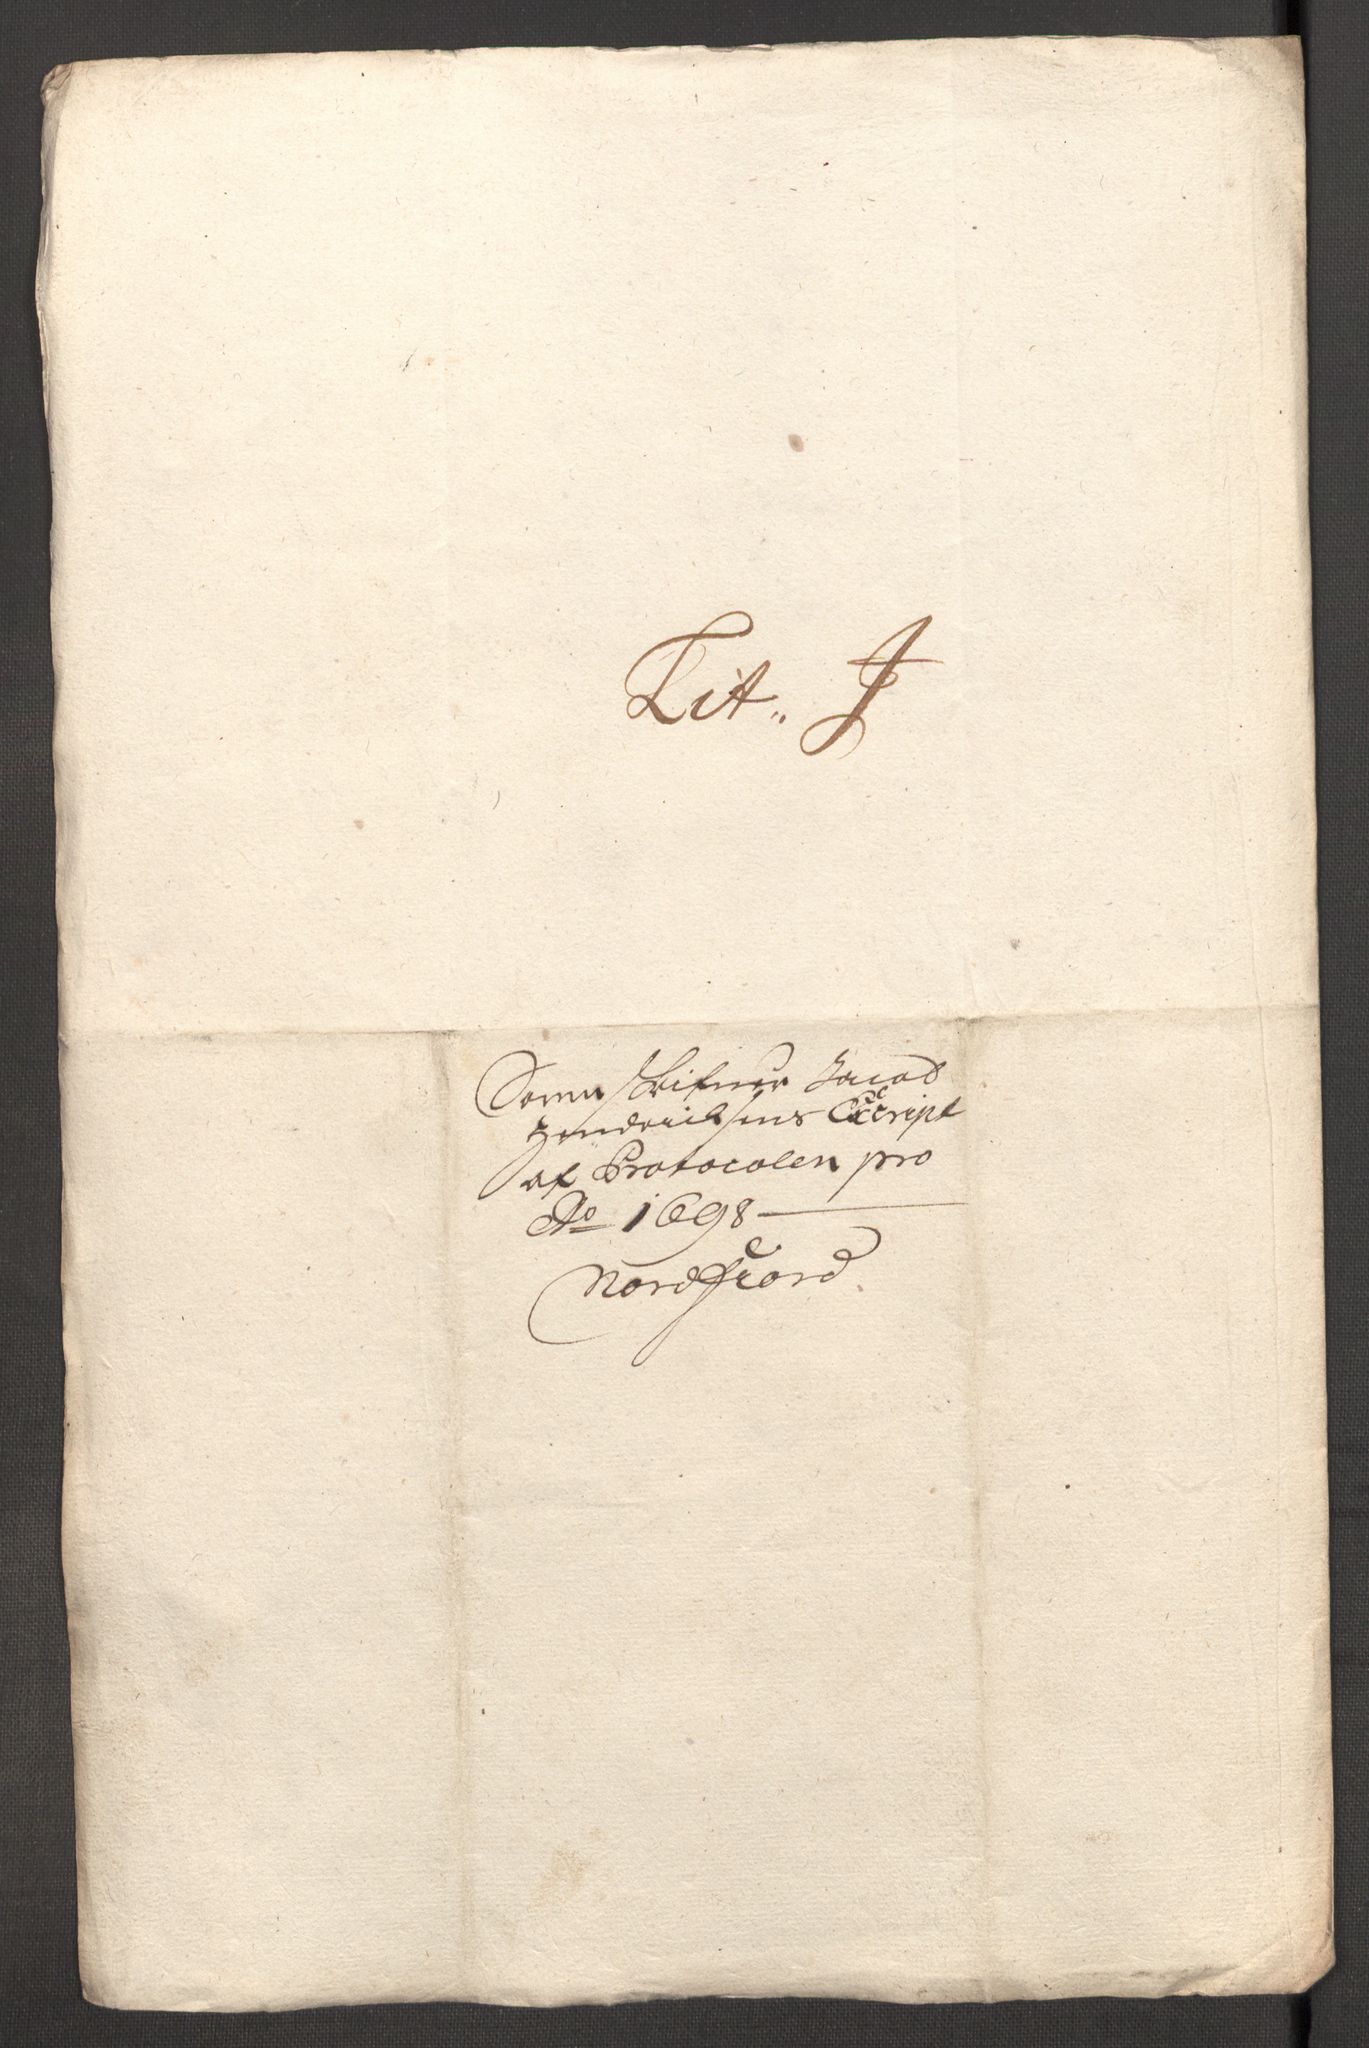 Lit. J
Sorenskrifver Jacob
Hendrichsens Excript
af Protocolen pro
Ao 1698
Nordfiord